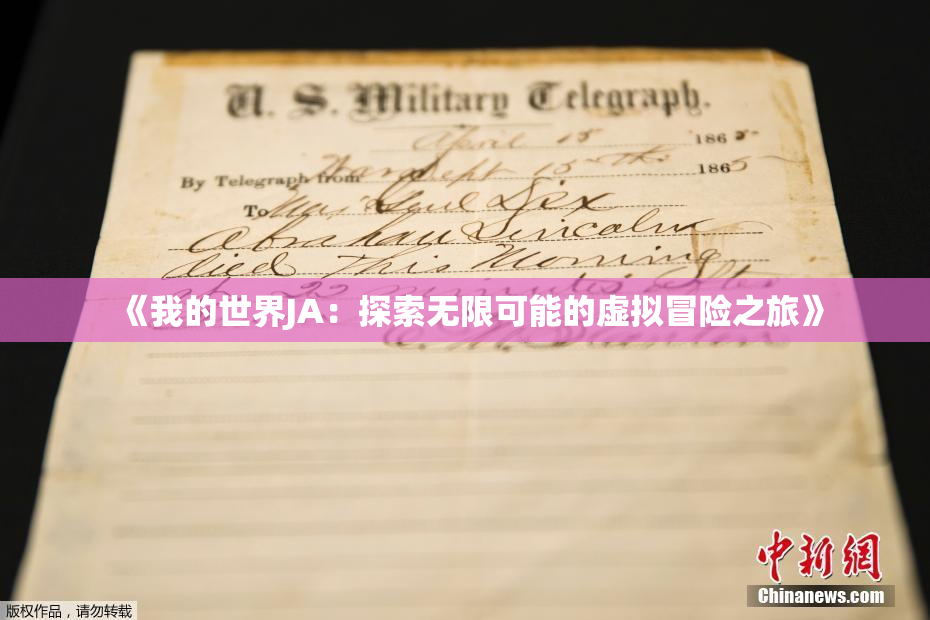 U. S. Military Telegraph.
April 15 1865
By Telegraph from War Dept 15th 1865
To Maj Genl Dix
Abraham Lincoln
died This Morning
at 22 minutes after
《我的世界JA：探索无限可能的虚拟冒险之旅》
E. M. Stanton
中新网
Chinanews.com
版权作品，请勿转载